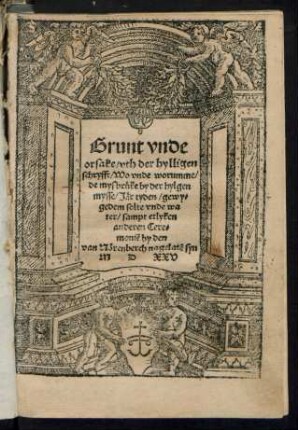 Grunt vnde
orsake/vth der hylligen
schryfft/Wo vnde worumme/
de mysbrůke by der hylgen
mysse/Jår tyden/gewy-
gedem solte vnde wa
ter/sampt etlyken
anderen Cere-
monie̅ by den
van Nôrenberch nagelate̅ syn
M D XXV